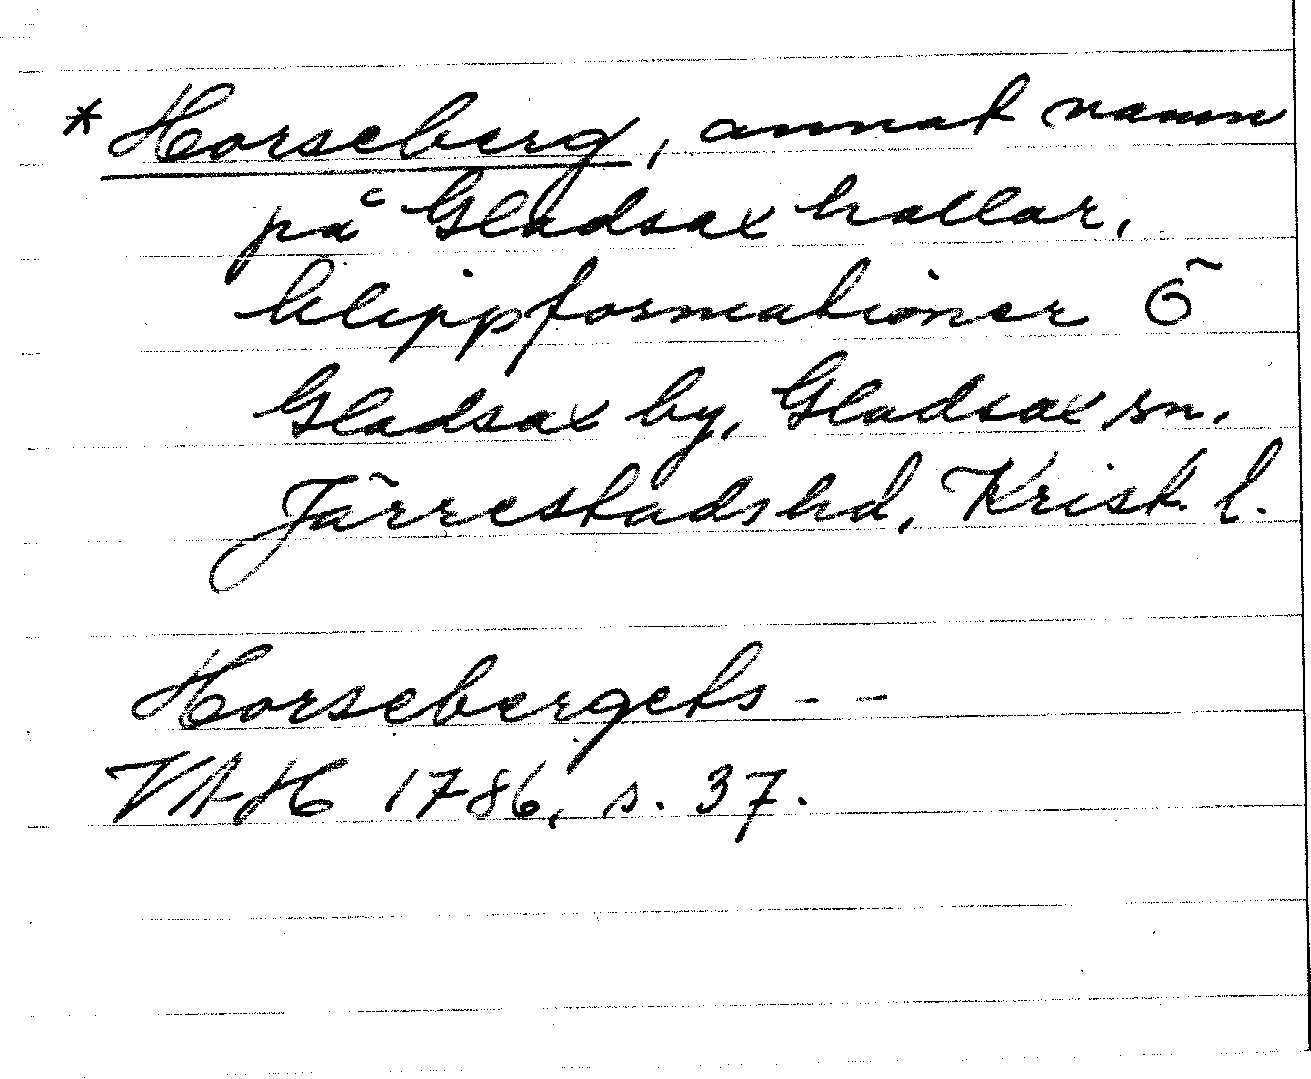 * Horseberg, annat namn
på Gladsax hallar,
klippformationer Ö
Gladsax by, Gladsax sn,
Järrestads hd, Krist. l.
Horsebergets - -
VAH 1786, s. 37.